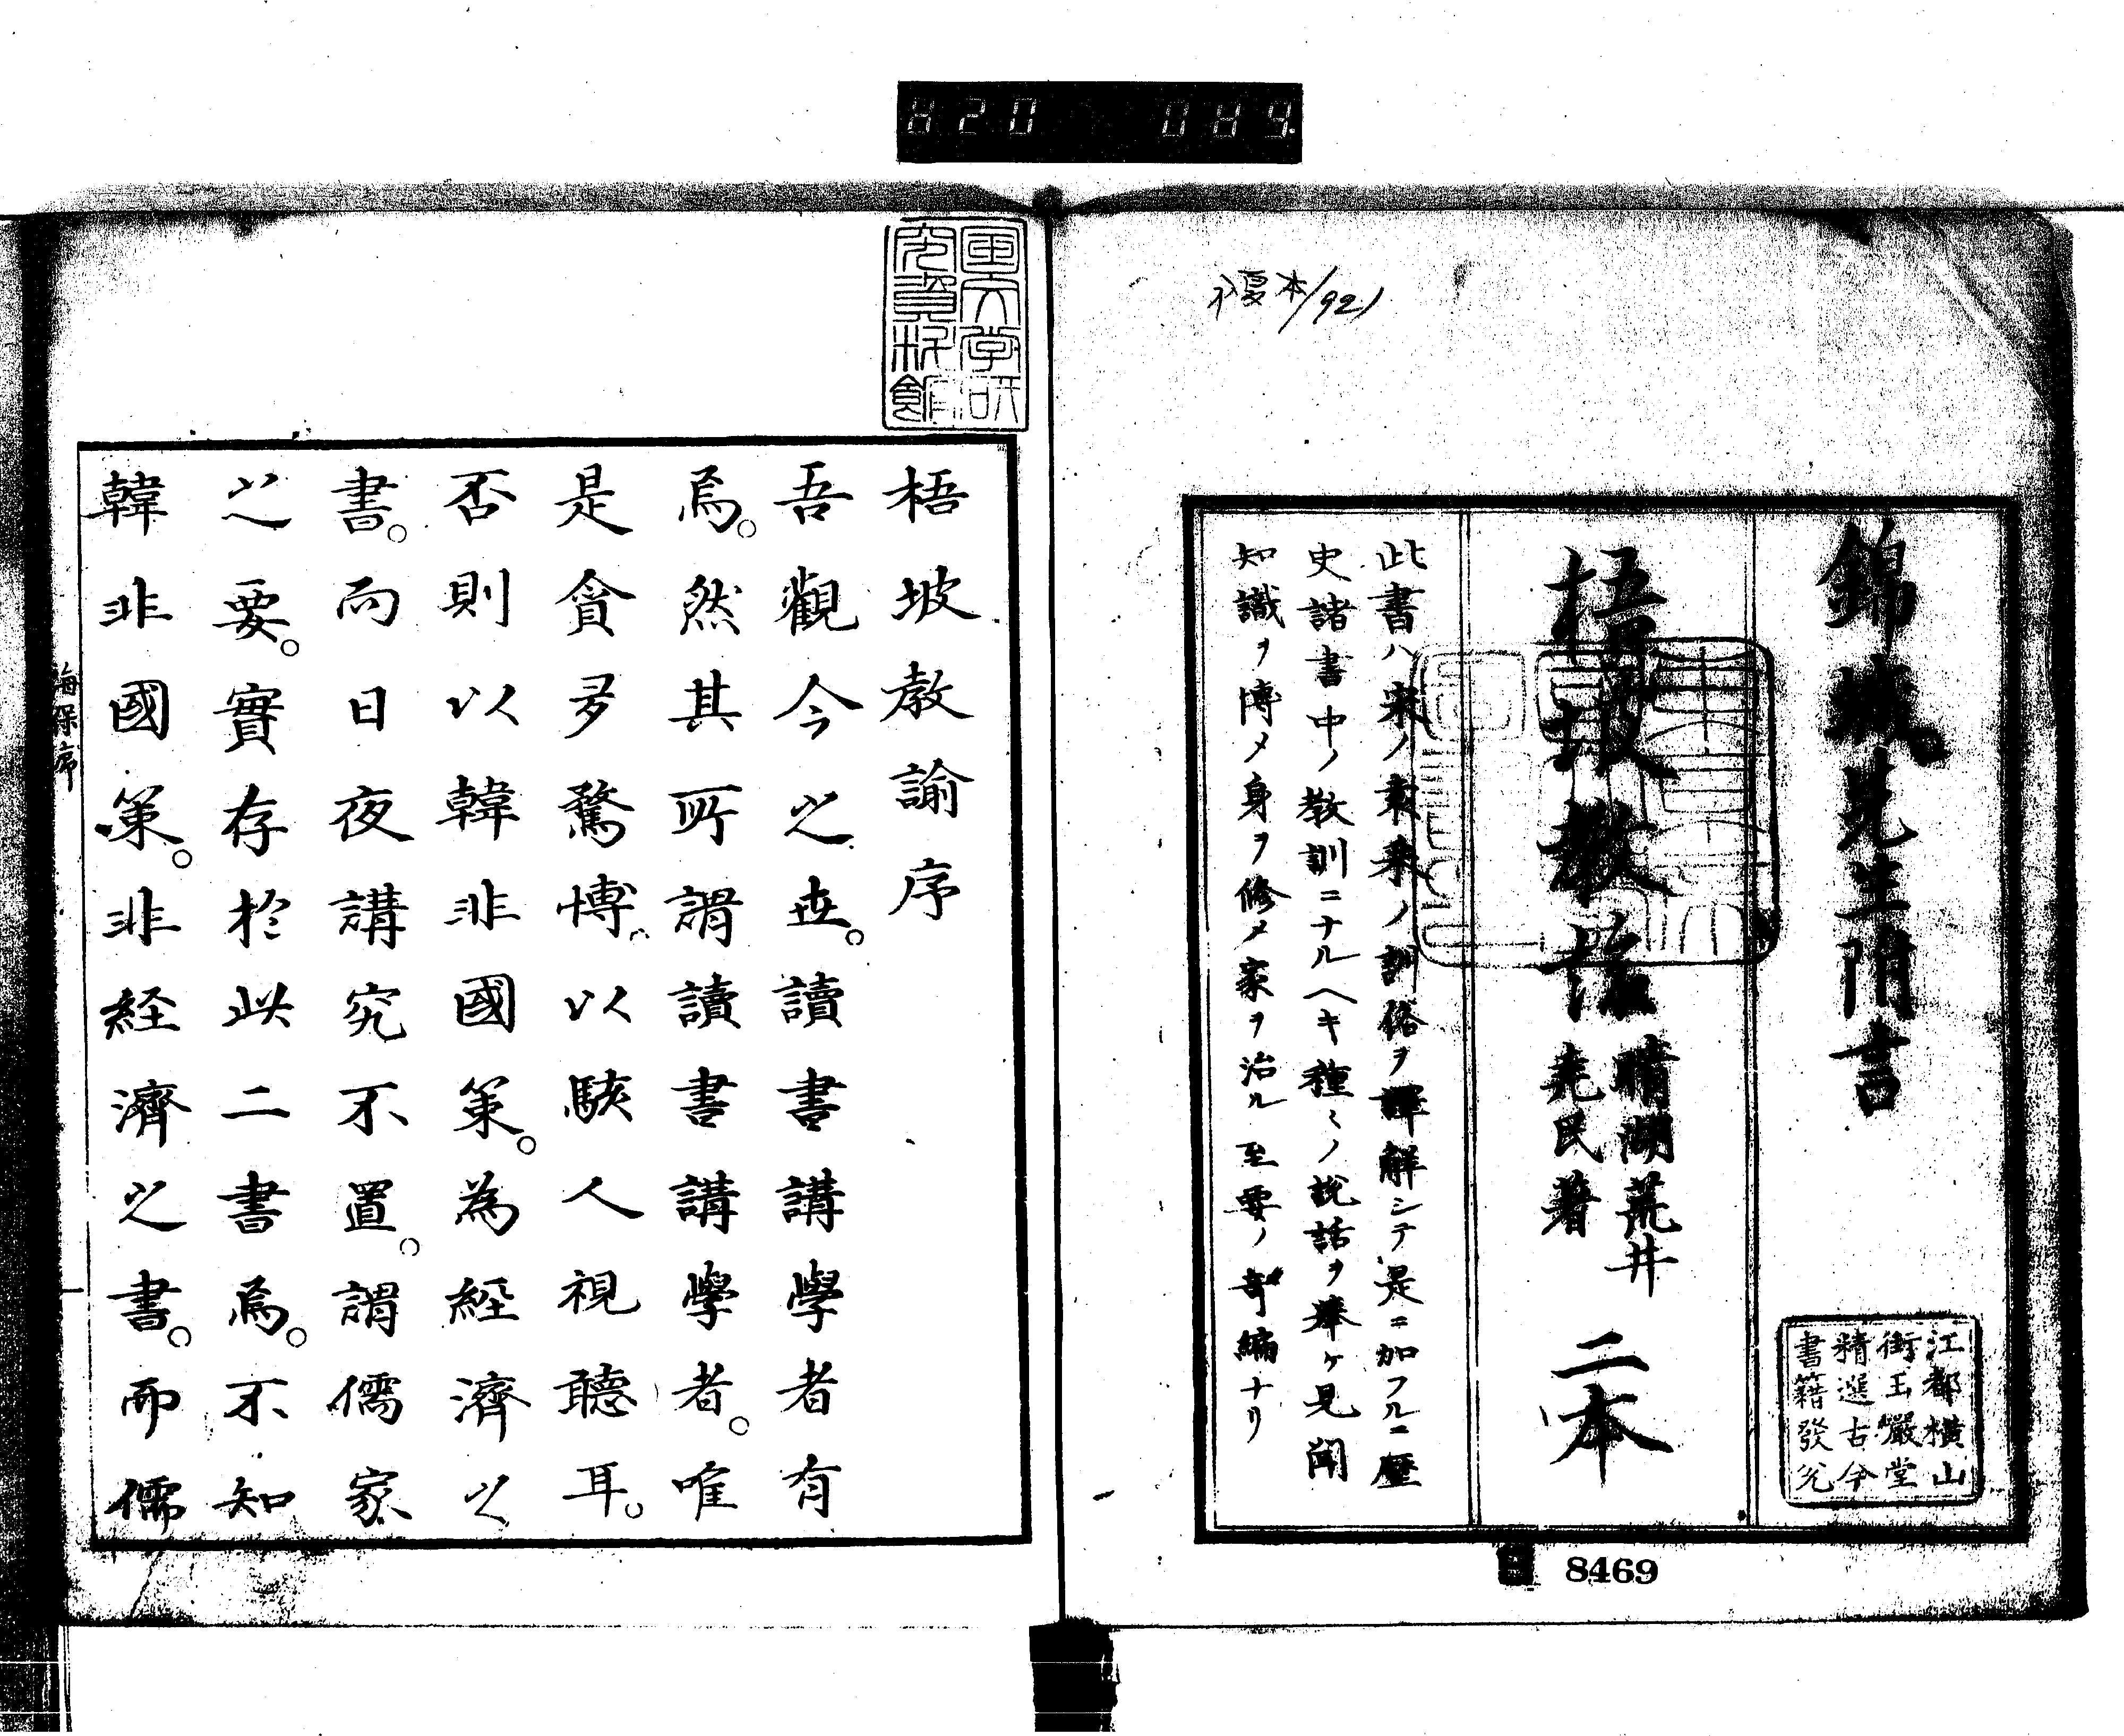 420 049.
複本/921
錦城先生附言
梧坡教諭
晴湖荒井
堯民著
二本
此書ハ宋ノ袁采ノ訓俗ヲ譯解シテ是ニ加フルニ歴
史諸書中ノ教訓ニナルヘキ種〻ノ説話ヲ挙ケ見聞
知識ヲ博メ身ヲ修メ家ヲ治ル至要ノ奇編ナリ
江都横山
街玉巖堂
精選古今
書籍發兌
8469
国文学研
究資料館
梧坡教諭序
吾觀今之世。讀書講學者有
焉。然其所謂讀書講學者。唯
是貪多驁博。以駭人視聽耳。
否則以韓非國策。為經濟之
書。而日夜講究不置。謂儒家
之要。實存於此二書焉。不知
韓非國策。非経濟之書。而儒
海保序